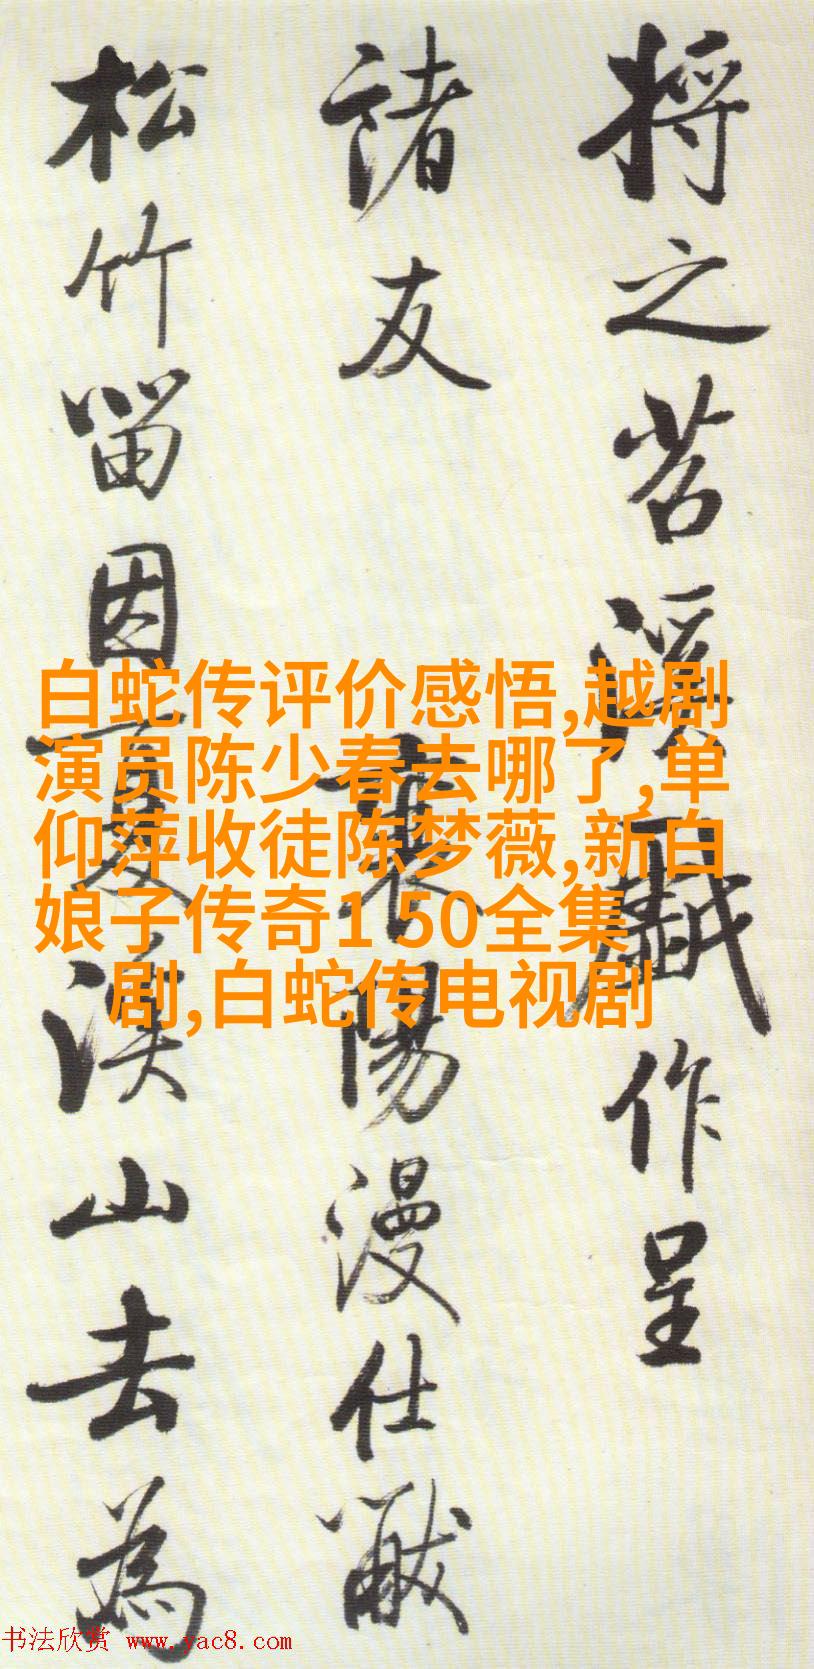 將之苕溪戲作呈
諸友 襄陽漫仕黻
松竹留因夏溪山去為
白蛇传评价感悟,越剧
演员陈少春去哪了,单
仰萍收徒陈梦薇,新白
娘子传奇1 50全集
剧,白蛇传电视剧
书法欣赏 www.yac8.com